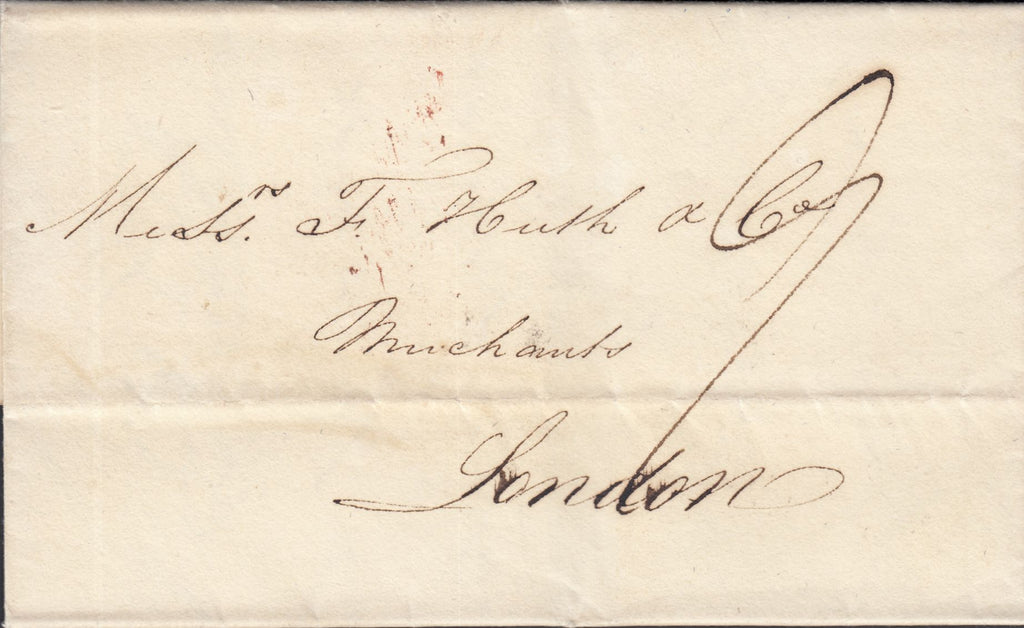 Messrs. F. Huth & Co
Merchants
London
9